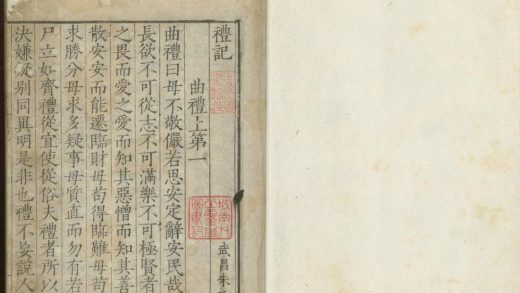 禮記
曲禮上第一
武昌朱
曲禮曰毋不敬儼若思安定辭安民哉
長欲不可從志不可滿樂不可極賢者
之畏而愛之愛而知其惡憎而知其善
散安安而能遷臨財毋苟得臨難毋苟
求勝分毋求多疑事毋質直而勿有若
尸立如齊禮從宜使從俗夫禮者所以
決嫌疑別同異明是非也禮不妄說人